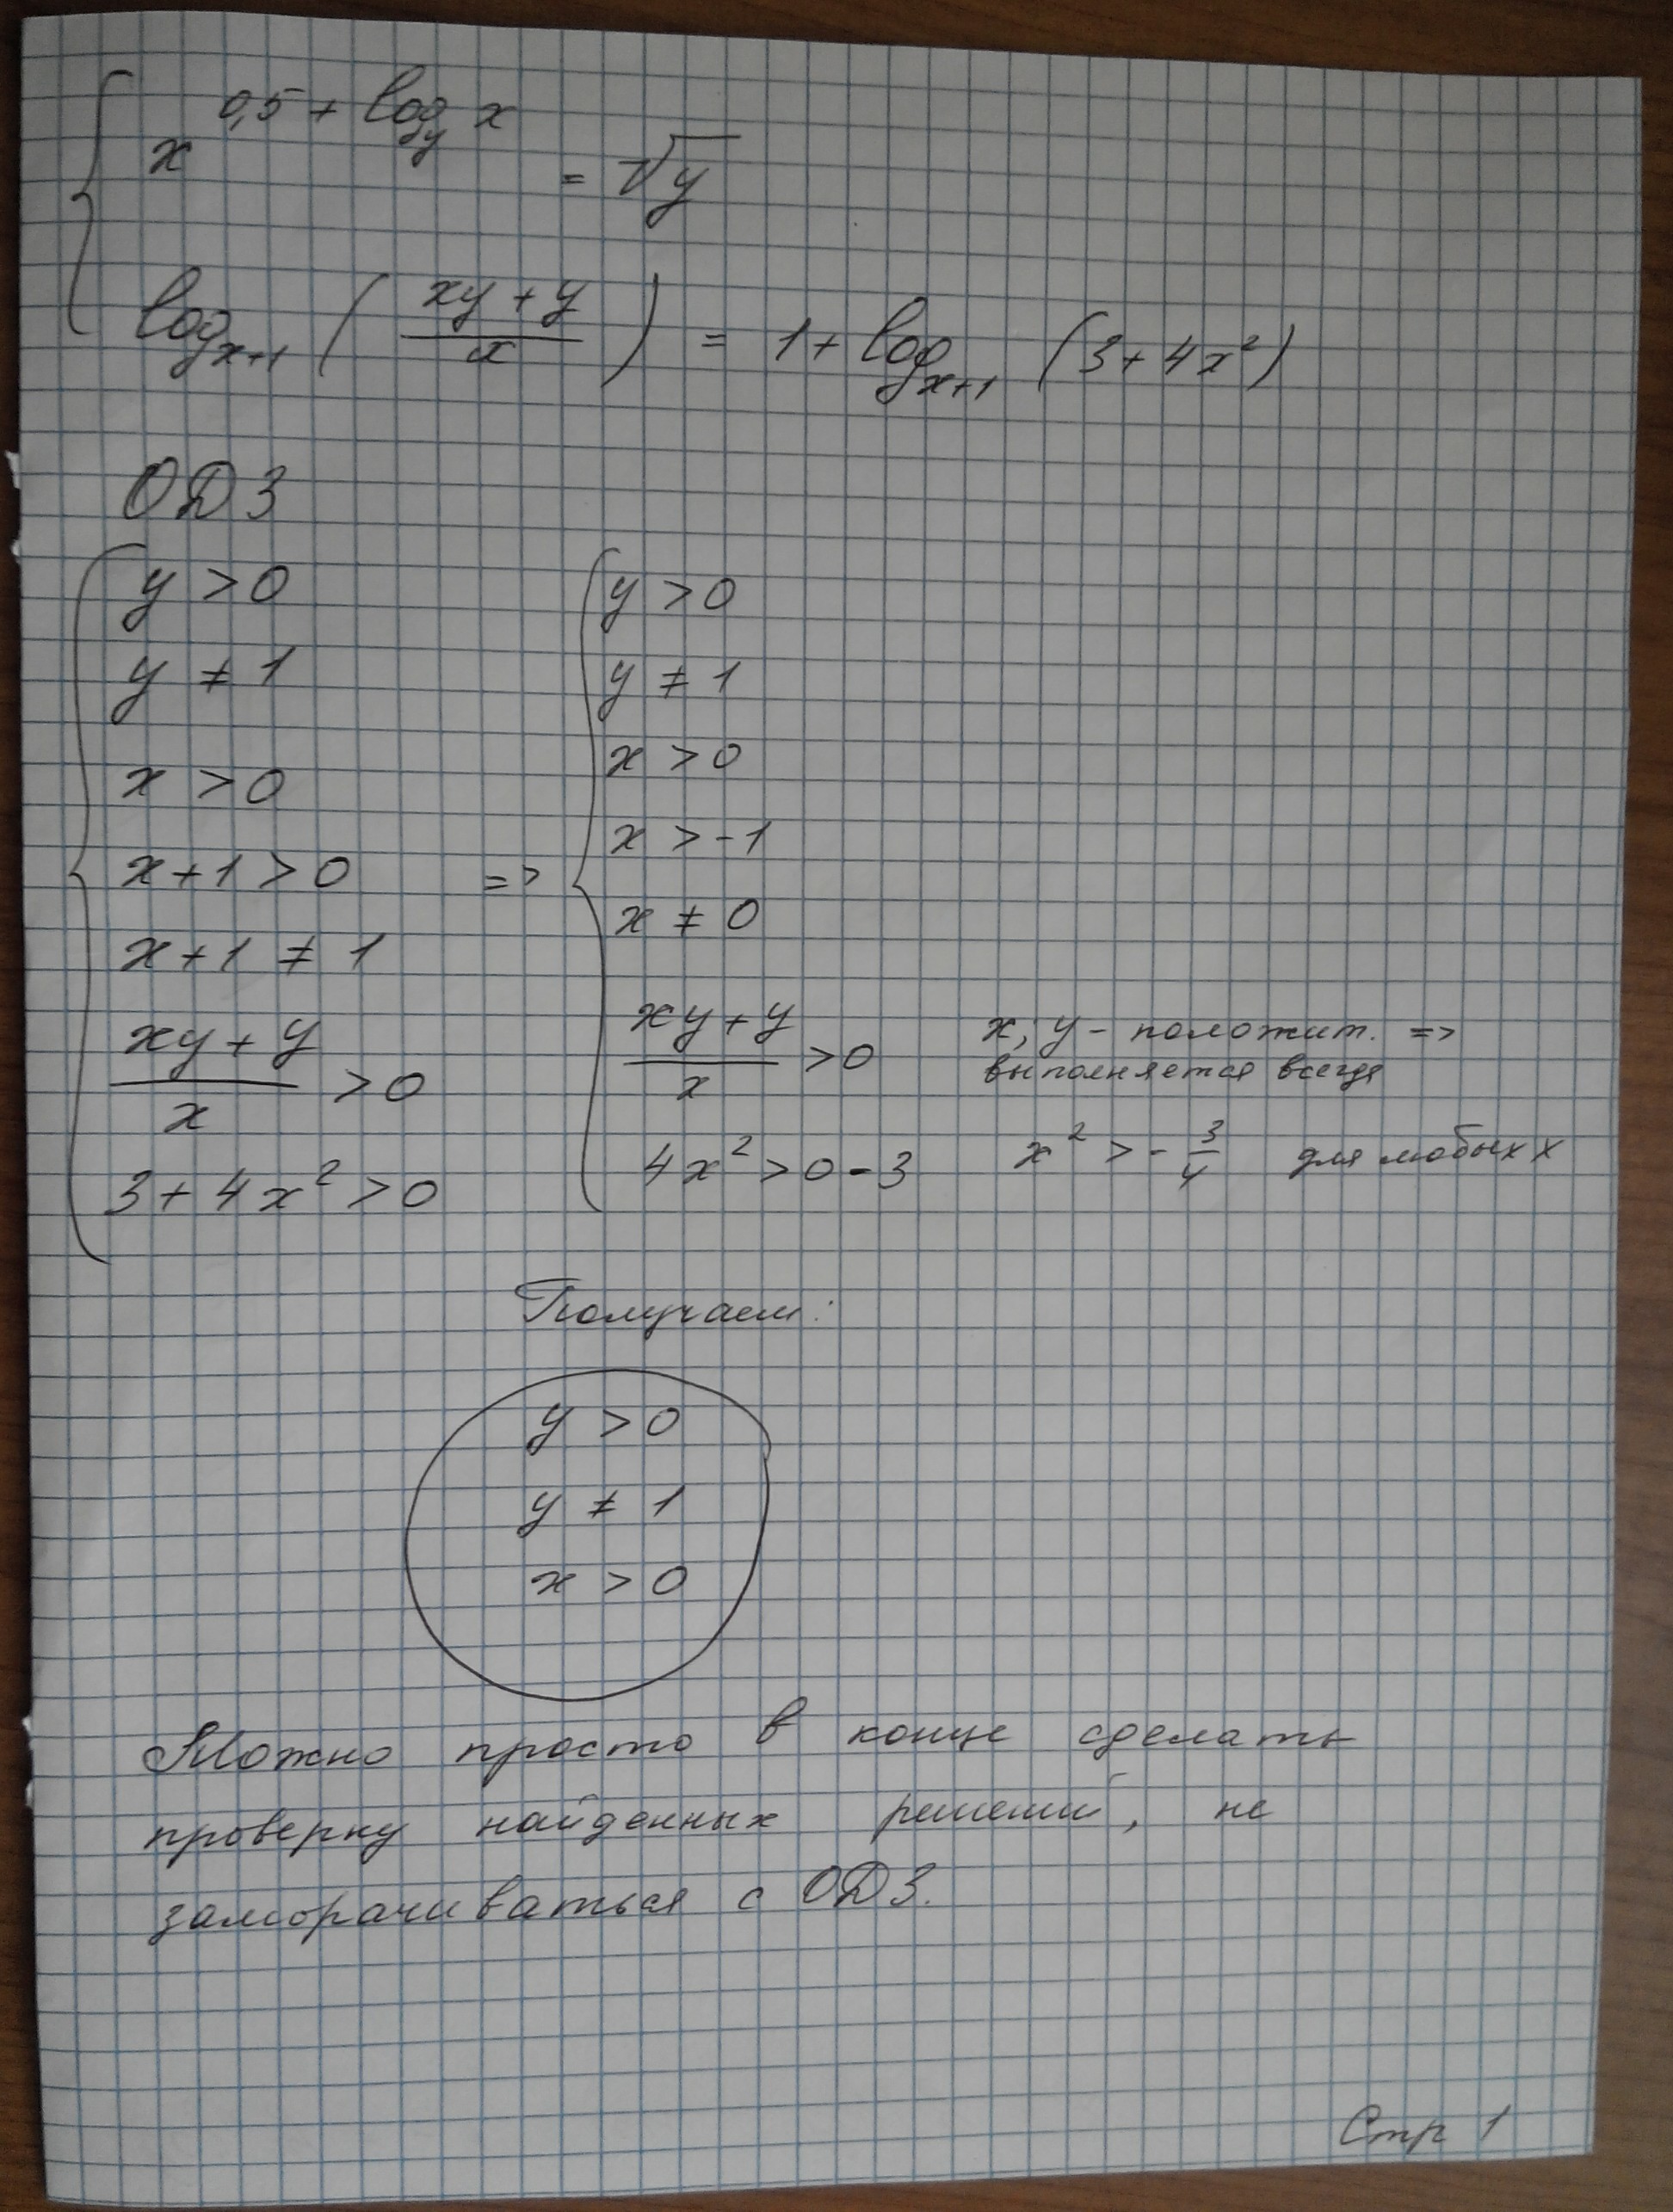 x^{0,5 + log_y x} = √y
log_{x+1} ( (xy + y) / x ) = 1 + log_{x+1} (3 + 4x²)
ОДЗ
y > 0
y ≠ 1
x > 0
x + 1 > 0
x + 1 ≠ 1
(xy + y) / x > 0
3 + 4x² > 0
=>
y > 0
y ≠ 1
x > 0
x > -1
x ≠ 0
(xy + y) / x > 0
x, y - положит. =>
выполняется всегда
4x² > 0 - 3
x² > - 3/4 для любых x
Получаем:
y > 0
y ≠ 1
x > 0
Можно просто в конце сделать
проверку найденных решений, не
заморачиваться с ОДЗ.
Стр 1